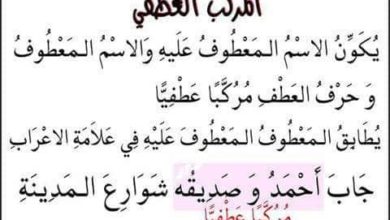 المركب العطفي
يُكَوِّنُ الاسْمُ الـمَعْطُوفُ عَلَيهِ وَالاسْمُ الـمَعْطُوفُ
وَ حَرْفُ العَطْفِ مُرُكَّبًا عَطْفِيًّا
يُطَابِقُ الـمَعْطُوفُ الـمَعْطُوفَ عَلَيْهِ فِي عَلاَمَةِ الاعْرَابِ
جَابَ أَحْمَدُ وَ صَدِيقُه شَوَارِعَ الـمَدِينَةِ
مُرُكَّبًا عَطْفِيًّا